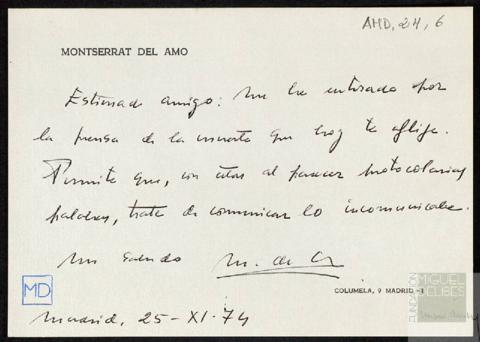 AMD, 24, 6
MONTSERRAT DEL AMO
Estimado amigo: me he enterado por
la prensa de la muerte que hoy te aflige.
Permite que, con estas al parecer protocolarias
palabras, trate de comunicar lo incomunicable.
Un saludo M. del A
MD
COLUMELA, 9 MADRID -1
FUNDACIÓN
MIGUEL
DELIBES
Madrid, 25-XI-74